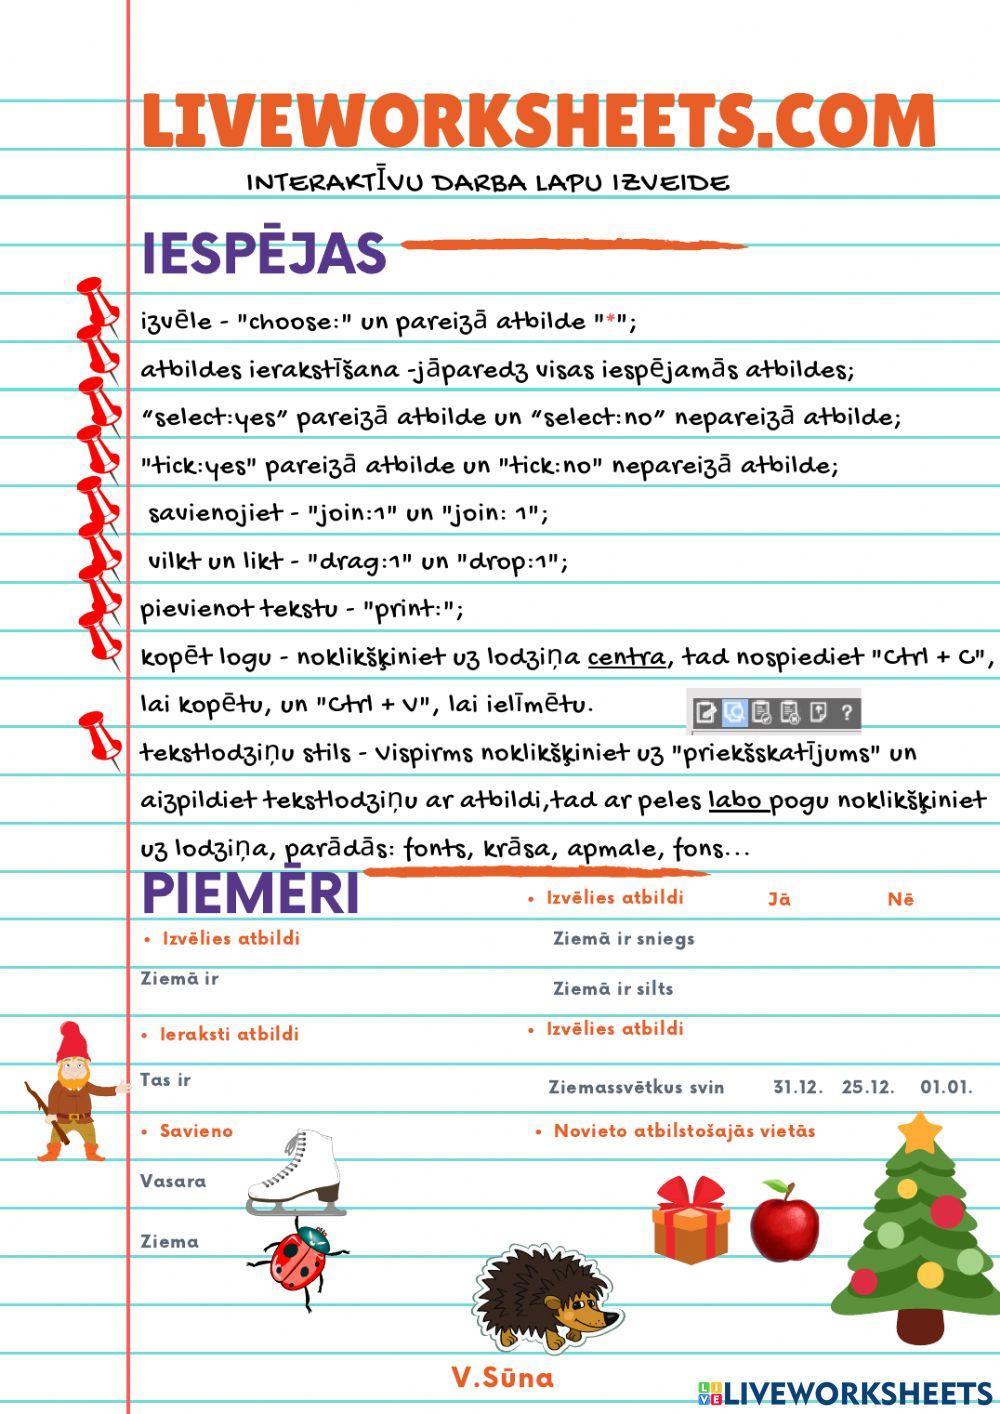 LIVEWORKSHEETS.COM
INTERAKTĪVU DARBA LAPU IZVEIDE
IESPĒJAS
izvēle - "choose:" un pareizā atbilde "*";
atbildes ierakstīšana -jāparedz visas iespējamās atbildes;
“select:yes” pareizā atbilde un “select:no” nepareizā atbilde;
"tick:yes" pareizā atbilde un "tick:no" nepareizā atbilde;
savienojiet - "join:1" un "join: 1";
vilkt un likt - "drag:1" un "drop:1";
pievienot tekstu - "print:";
kopēt logu - noklikšķiniet uz lodziņa centra, tad nospiediet "Ctrl + C",
lai kopētu, un "Ctrl + V", lai ielīmētu.
?
tekstlodziņu stils - Vispirms noklikšķiniet uz "priekšskatījums" un
aizpildiet tekstlodziņu ar atbildi,tad ar peles labo pogu noklikšķiniet
uz lodziņa, parādās: fonts, krāsa, apmale, fons...
PIEMĒRI
• Izvēlies atbildi
Ziemā ir
• Ieraksti atbildi
Tas ir
• Savieno
Vasara
Ziema
• Izvēlies atbildi Jā Nē
Ziemā ir sniegs
Ziemā ir silts
• Izvēlies atbildi
Ziemassvētkus svin 31.12. 25.12. 01.01.
• Novieto atbilstošajās vietās
V.Sūna
LIVE LIVEWORKSHEETS